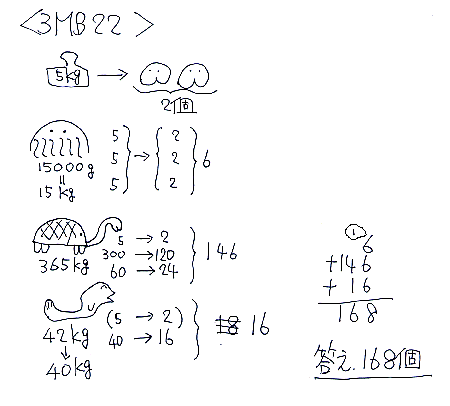 <3MB22>
5kg → 2個
5
5
5
→
2
2
2
6
15000g
=
15kg
5 → 2
300 → 120
60 → 24
146
365kg
(5 → 2)
40 → 16
16
42kg
↓
40kg
①
6
+146
+ 16
168
答え.168個